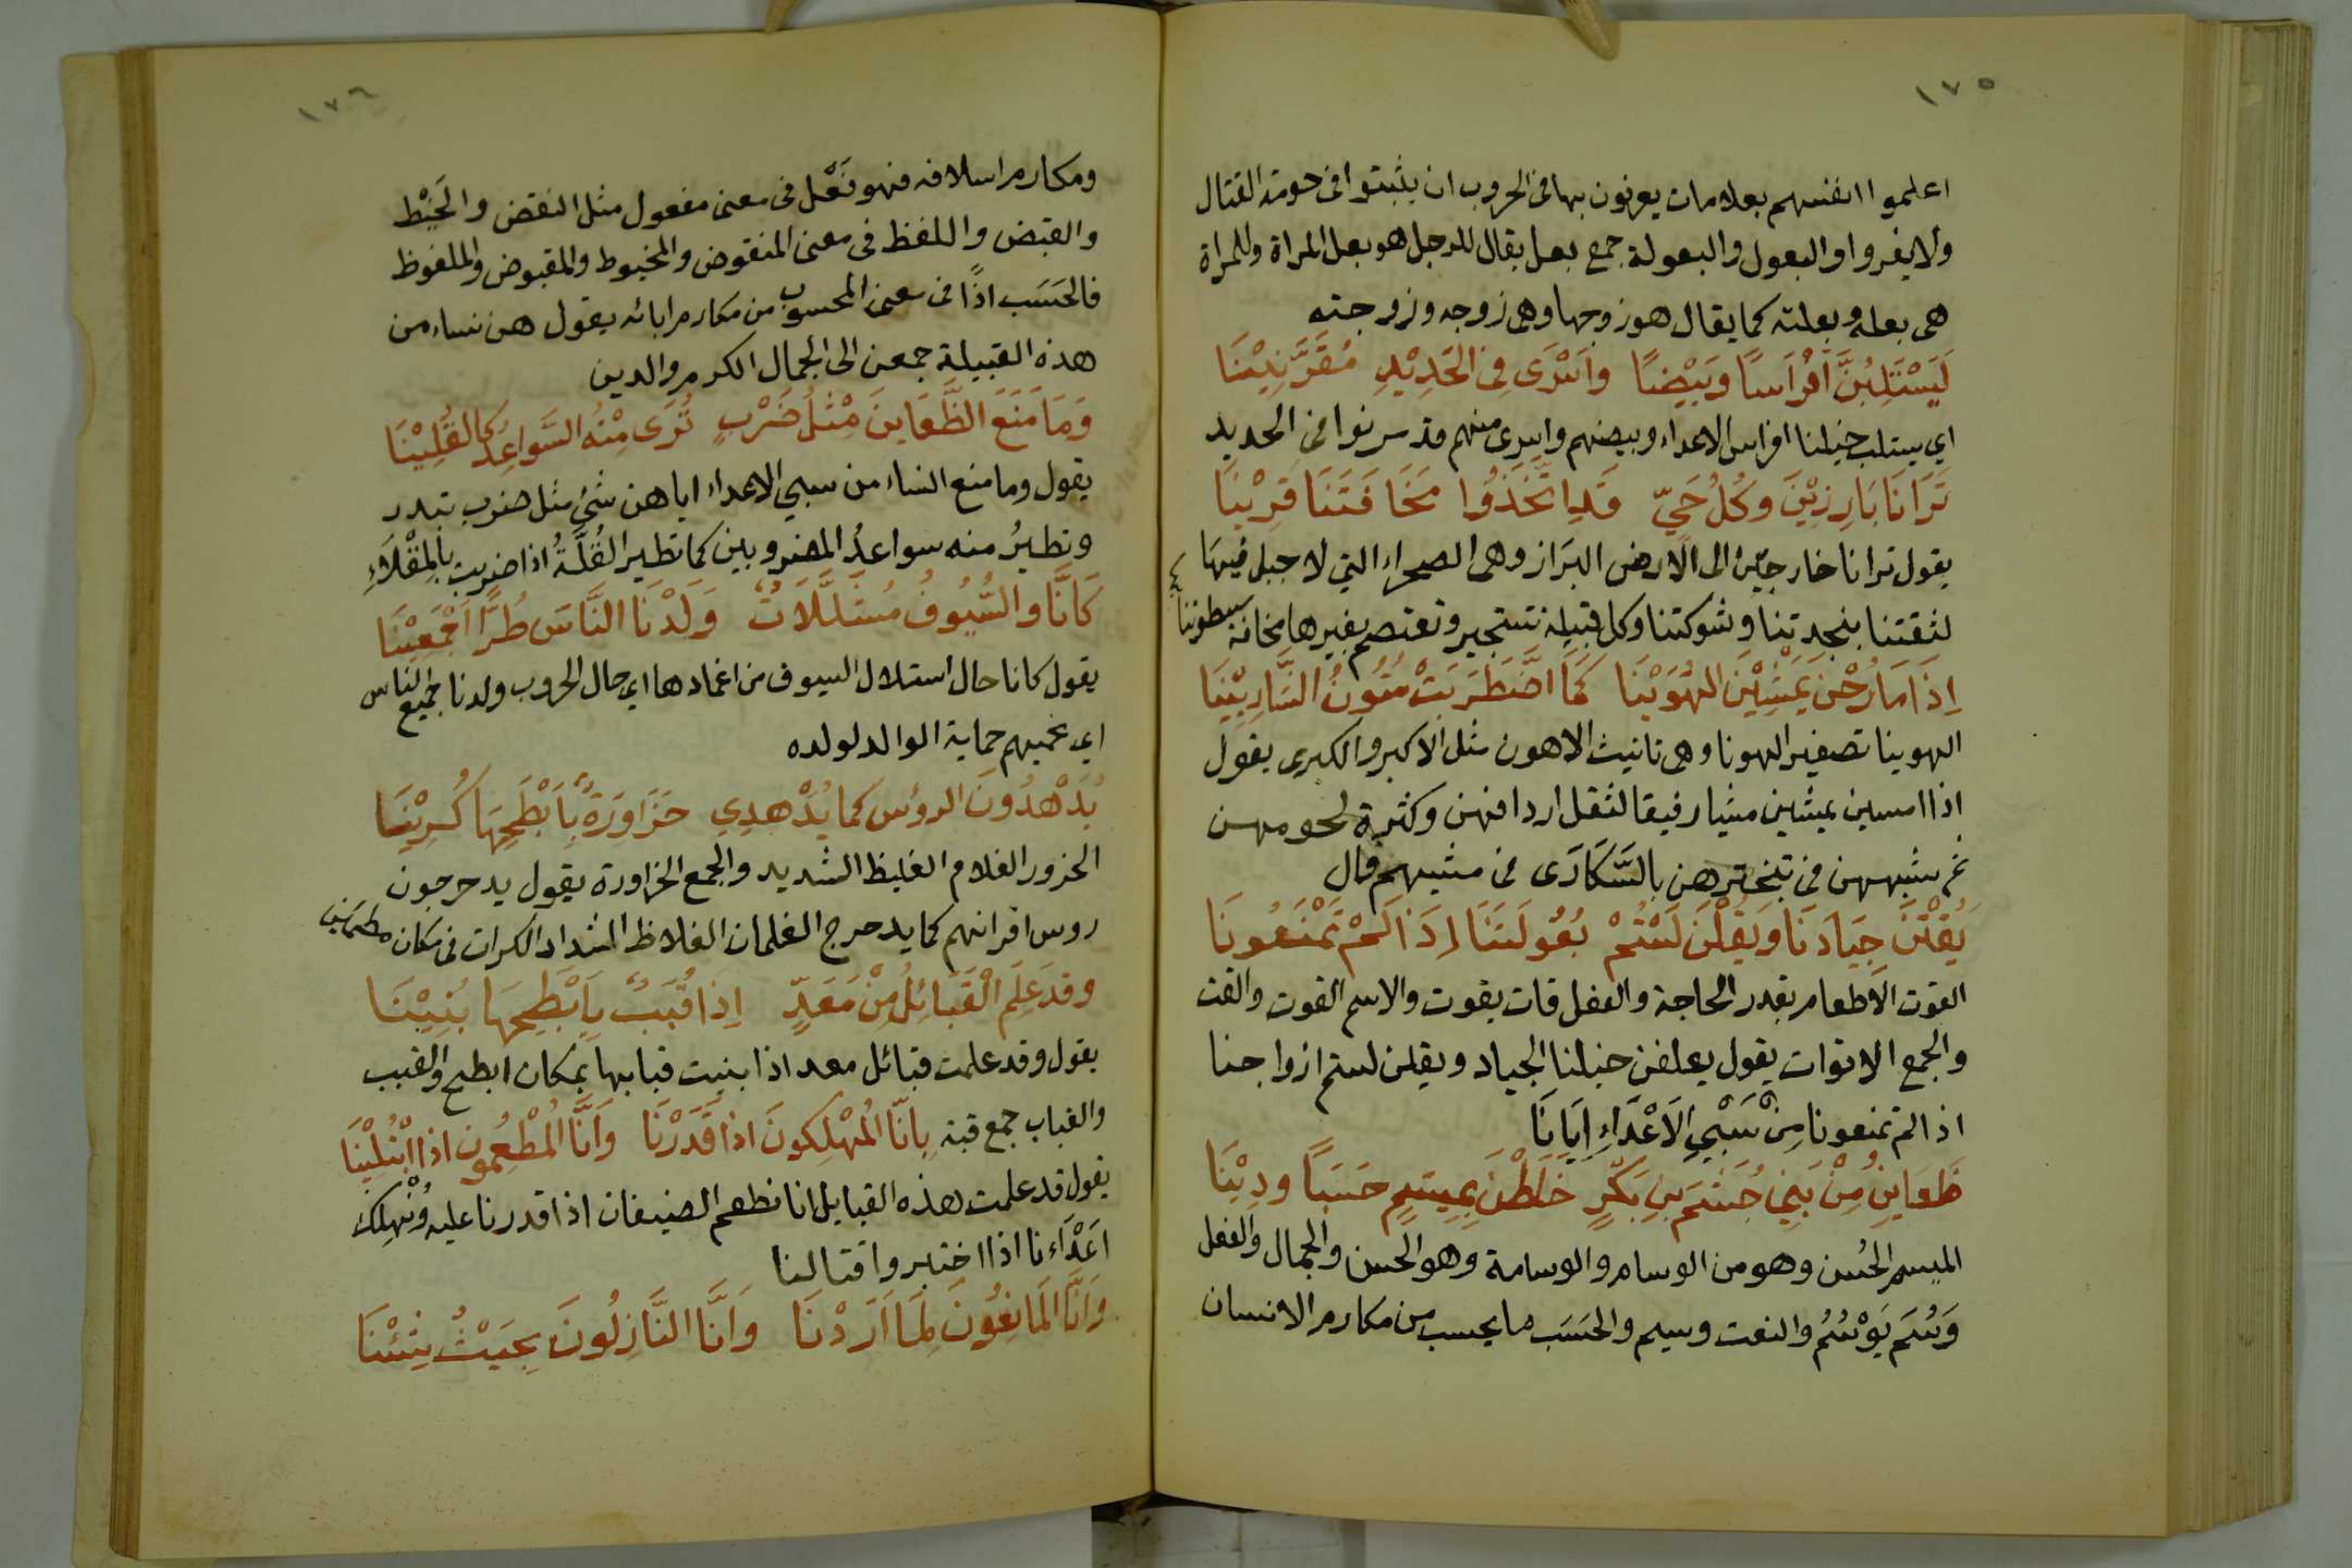 ١٧٥
اعلموا انفسهم بعلامات يعرفون بها فى الحروب ان يثبتوا فى حومة القتال
ولا يفروا والبعول والبعولة جمع بعل يقال للرجل هو بعل المراة وللمراة
هى بعله وبعلته كما يقال هو زوجها وهى زوجه وزوجته
لَيَسْتَلِبُنَّ اَفْرَاسًا وَبَيْضًا وَاَسْرَى فِى الحَدِيْدِ مُقَرَّنِيْنَا
اي يستلب خيلنا افراس الاعداء وبيضهم واسرى منهم قد سرنوا فى الحديد
تَرَانَا بَارِزِيْنَ وَكُلُّ حَيٍّ قَدِ اتَّخَذُوا مَخَافَتَنَا قَرِيْنَا
يقول ترانا خارجين الى الارض البَرَاز وهى الصحراء التي لا جبل فيها
لثقتنا بنجدتنا وشوكتنا وكل قبيلة تستجير وتعتصم بغيرها مخافة سطوتنا
اِذَا مَا رُحْنَ يَمْشِيْنَ الهُوَيْنَا كَمَا اضْطَرَبَتْ مُتُونُ الشَّارِبِيْنَا
الهوينا تصغير الهونا وهى تانيث الاهون مثل الاكبر والكبرى يقول
اذا امسين يمشين مشيا رفيقا لثقل اردافهن وكثرة لحومهن
ثم شبههن فى تبخترهن بالسَّكَارَى فى مشيهم قال
يَقُتْنَ جِيَادَنَا وَيَقُلْنَ لَسْتُمْ بُعُولَتَنَا اِذَا لَمْ تَمْنَعُونَا
القوت الاطعام بقدر الحاجة والفعل قات يقوت والاسم القوت والقت
والجمع الاقوات يقول يعلفن خيلنا الجياد ويقلن لستم ازواجنا
اذا لم تمنعونا مِنْ سَبْيِ الاَعْدَاءِ اِيَانَا
ظَعَاينُ مِنْ بَنِي جُشَمَ بنِ بَكْرٍ خَلَطْنَ بِمِيسَمٍ حَسَبًا وَدِيْنَا
الميسم الحُسن وهو من الوسام والوسامة وهو الحسن والجمال والفعل
وَسُمَ يَوْسُمُ والنعت وسيم والحَسَب ما يحسب من مكارم الانسان
١٧٦
ومكارم اسلافه فهو فَعَل فى معنى مفعول مثل النقض والخَيْط
والقبض واللفظ فى معنى المنقوض والمخيوط والمقبوض والملفوظ
فالحَسَب اذًا فى معنى المحسوب من مكارم ابائه يقول هن نساء من
هذه القبيلة جمعن الى الجمال الكرم والدين
وَمَا مَنَعَ الظَّعَاينَ مِثْلُ ضَرْبٍ تُرَى مِنْهُ السَّواعِدُ كَالقُلِيْنَا
يقول وما منع النساء من سبي الاعداء اياهن شئ مثل ضرب تبدر
وتطيرُ منه سواعدُ المضروبين كما تطير القُلَةُ اذا ضربت بالمِقْلَاءِ
كَاَنَّا وَالسُّيُوفُ مُسَلَّلَاتٌ وَلَدْنَا النَّاسَ طُرًّا اَجْمَعِيْنَا
يقول كانا حال استلال السيوف من اغمادها اي حال الحروب ولدنا جميع الناس
اي نحميهم حماية الوالد لولده
يُدَهْدُونَ الرؤس كما يُدَهْدِي حَزَاوِرَةٌ بِاَبْطَحِهَا كُرِيْنَا
الحزور الغلام الغليظ الشديد والجمع الحزاورة يقول يدحرجون
روس اقرانهم كما يدحرج الغلمان الغلاظ الشداد الكرات فى مكان مطمئن
وقد عَلِمَ الْقَبَائِلُ مِنْ مَعَدٍّ اِذَا قُبَبٌ بِاَبْطَحِهَا بُنِيْنَا
يقول وقد علمت قبائل معد اذا بنيت قبابها بمكان ابطح والقبب
والقباب جمع قبة بِاَنَّا المُهْلِكُونَ اذا قَدَرْنَا وَاَنَّا المُطْعِمُونَ اذا ابْتُلِيْنَا
يقول قد علمت هذه القبايل انا نطعم الضيفان اذا قدرنا عليه ونُهْلِكُ
اَعْدَاءنا اذا اختبروا قتالنا
وَاَنَّا المَانِعُونَ لِمَا اَرَدْنَا وَاَنَّا النَّازِلُونَ بِحَيْثُ شِئْنَا